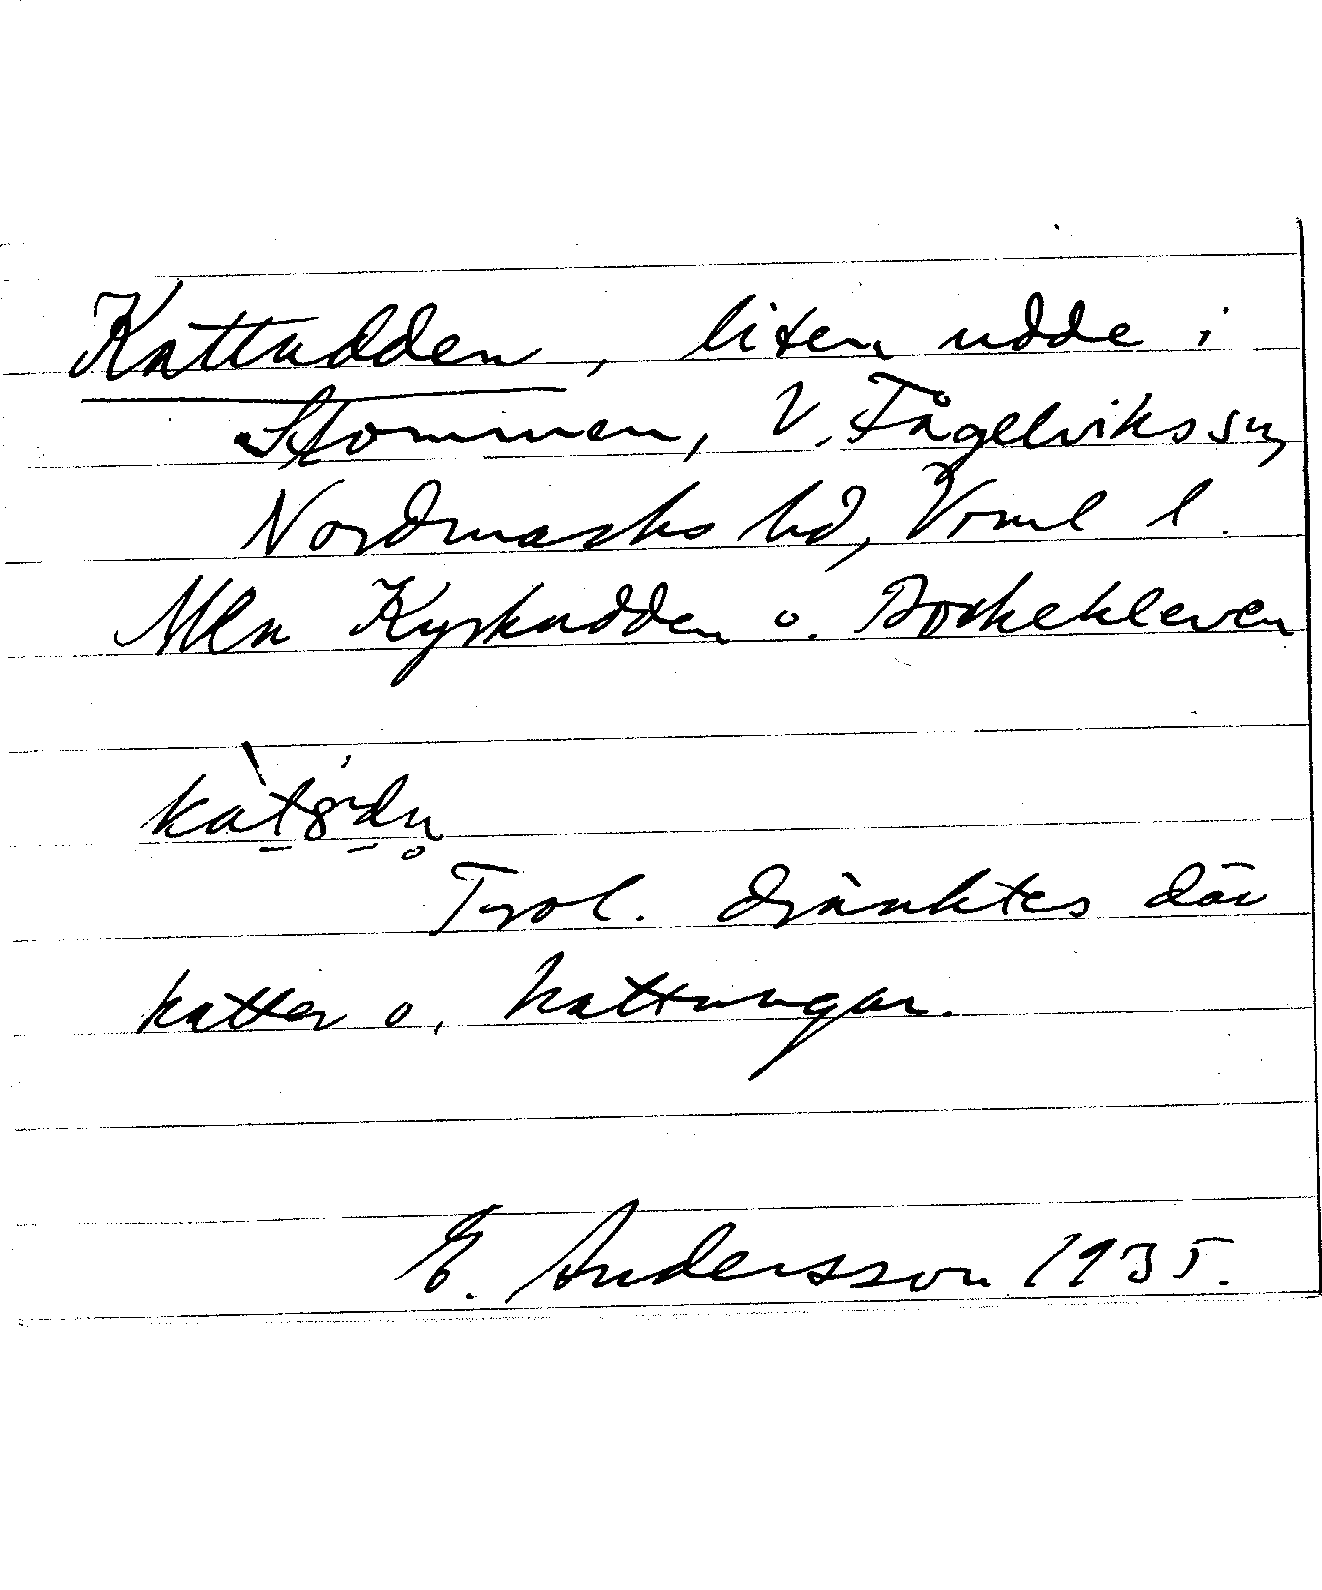 Kattudden, liten udde i
Stommen, V. Fågelviks sn,
Nordmarks hd, Vrml l.
Mln Kyrkudden o. Bockekleven
Trol. dränktes där
katter o. kattungar.
E. Andersson 1935.